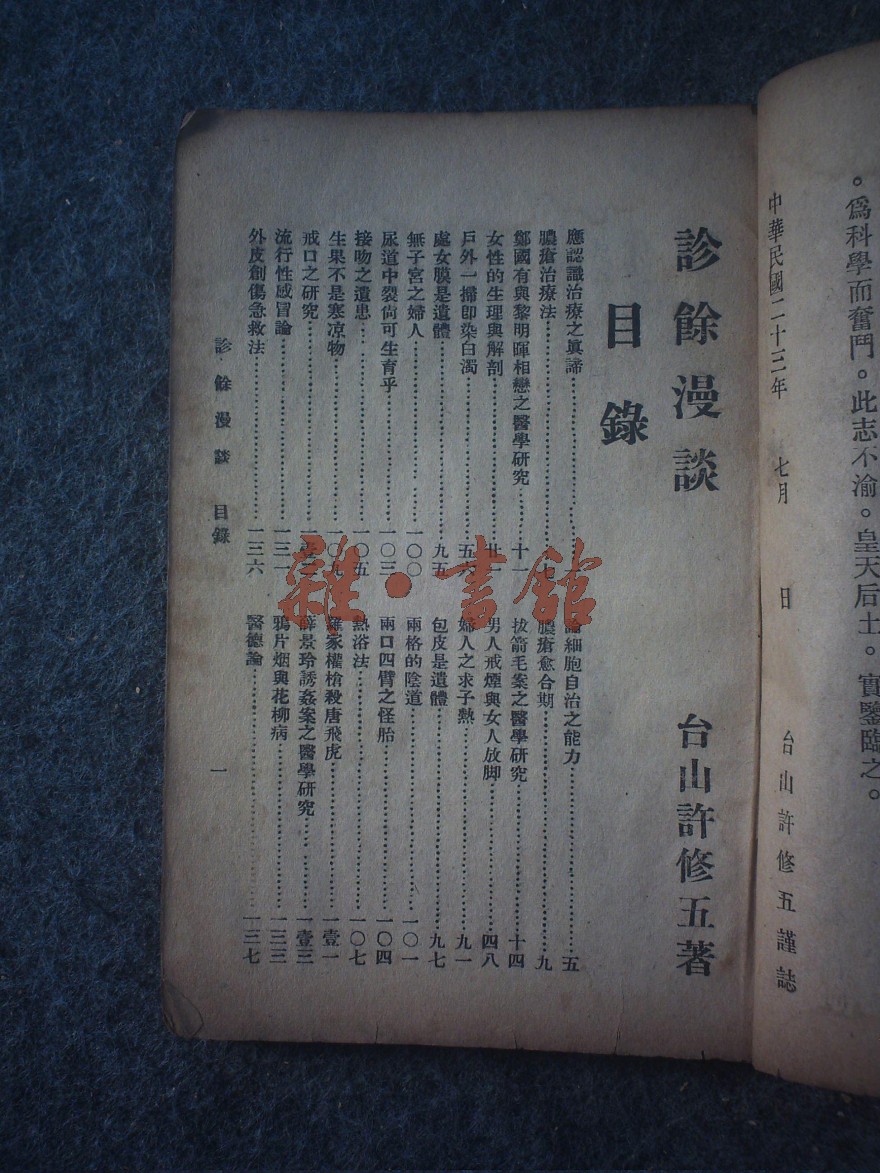 。爲科學而奮鬥。此志不渝。皇天后土。實鑒臨之。
中華民國二十三年 七月 日 台山許修五謹誌
診餘漫談 台山許修五著
目錄
應認識治療之眞諦…… 論細胞自治之能力……五
膿瘡治療法…… 膿瘡愈合期……九
鄭國有與黎明暉相戀之醫學研究……十一 拔箭毛案之醫學研究……十四
女性的生理與解剖……廿 男人戒煙與女人放脚……四八
戶外一掃卽染白濁……五六 婦人之求子熱……九一
處女膜是遺體……九五 包皮是遺體……九七
無子宮之婦人……一〇〇 兩格的陰道……一〇一
尿道中裂尙可生育乎……一〇三 兩口四臂之怪胎……一〇四
接吻之遺患……一〇五 熱浴法……一〇七
生果不是寒凉物……一〇九 羅家權槍殺唐飛虎……一壹一
戒口之研究……一壹 薛景玲誘姦案之醫學研究……一壹三
流行性感冒論……一三一 鴉片烟與花柳病……一三三
外皮創傷急救法……一三六 醫德論……一三七
診餘漫談 目錄 一
雜·書館